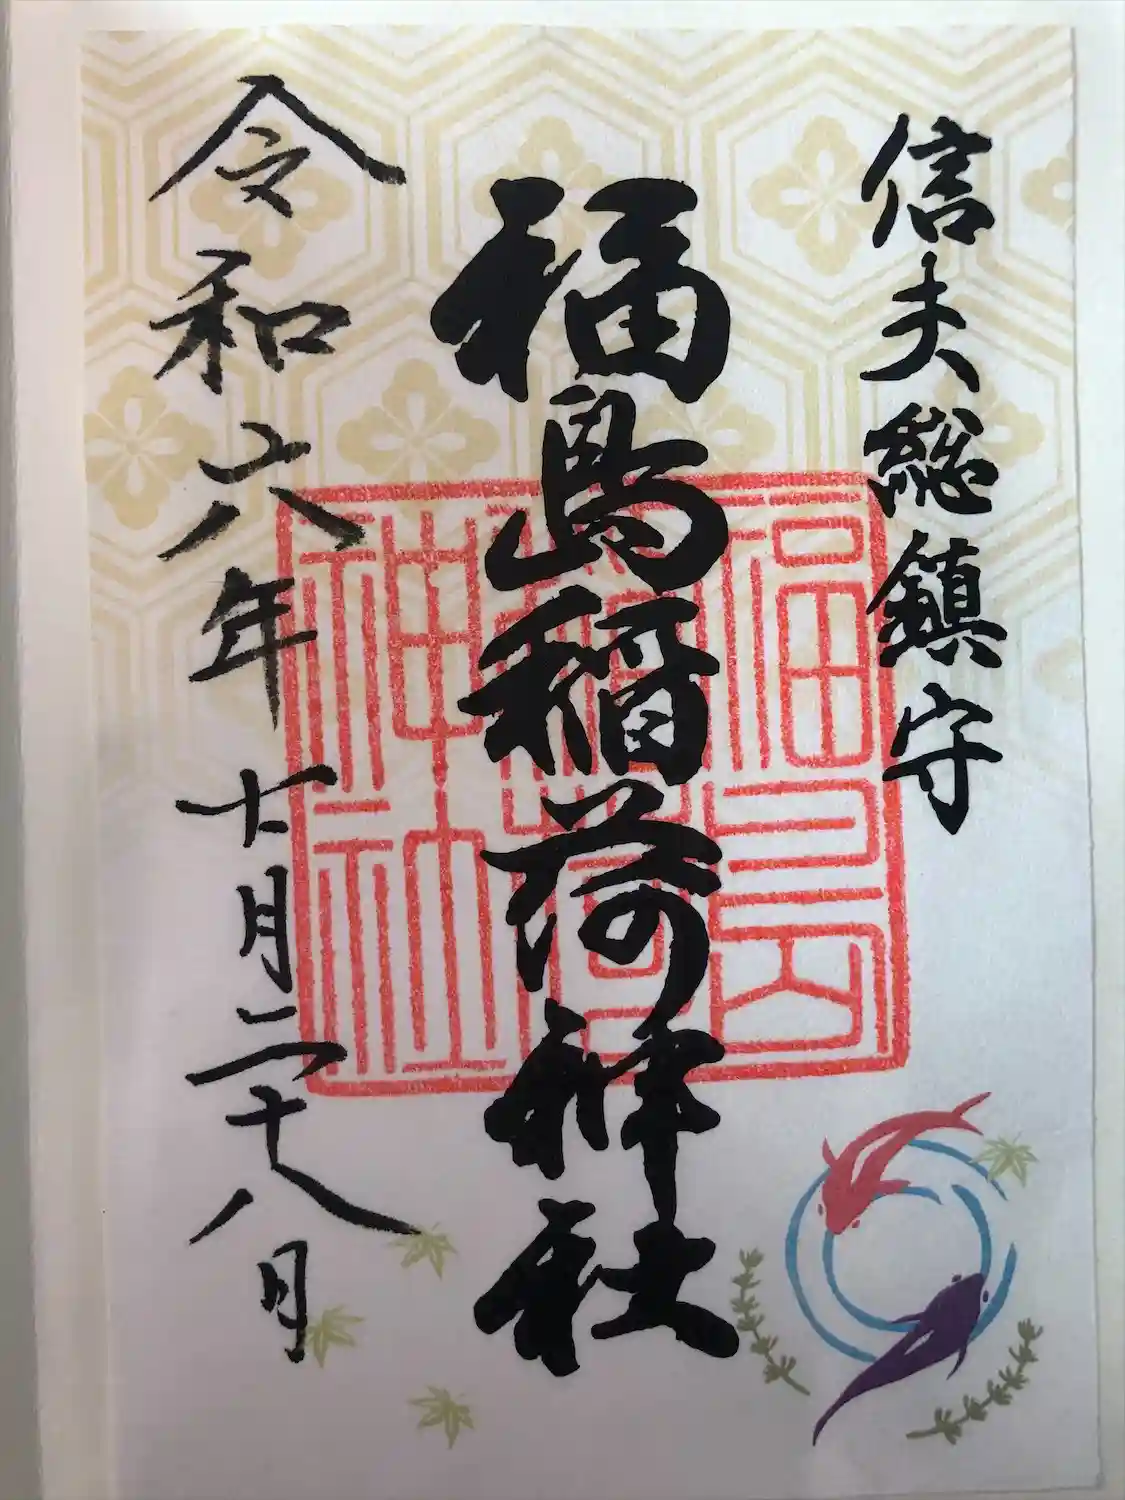 信夫総鎮守
福島稲荷神社
令和六年十月二十八日
福島
稲荷
神社